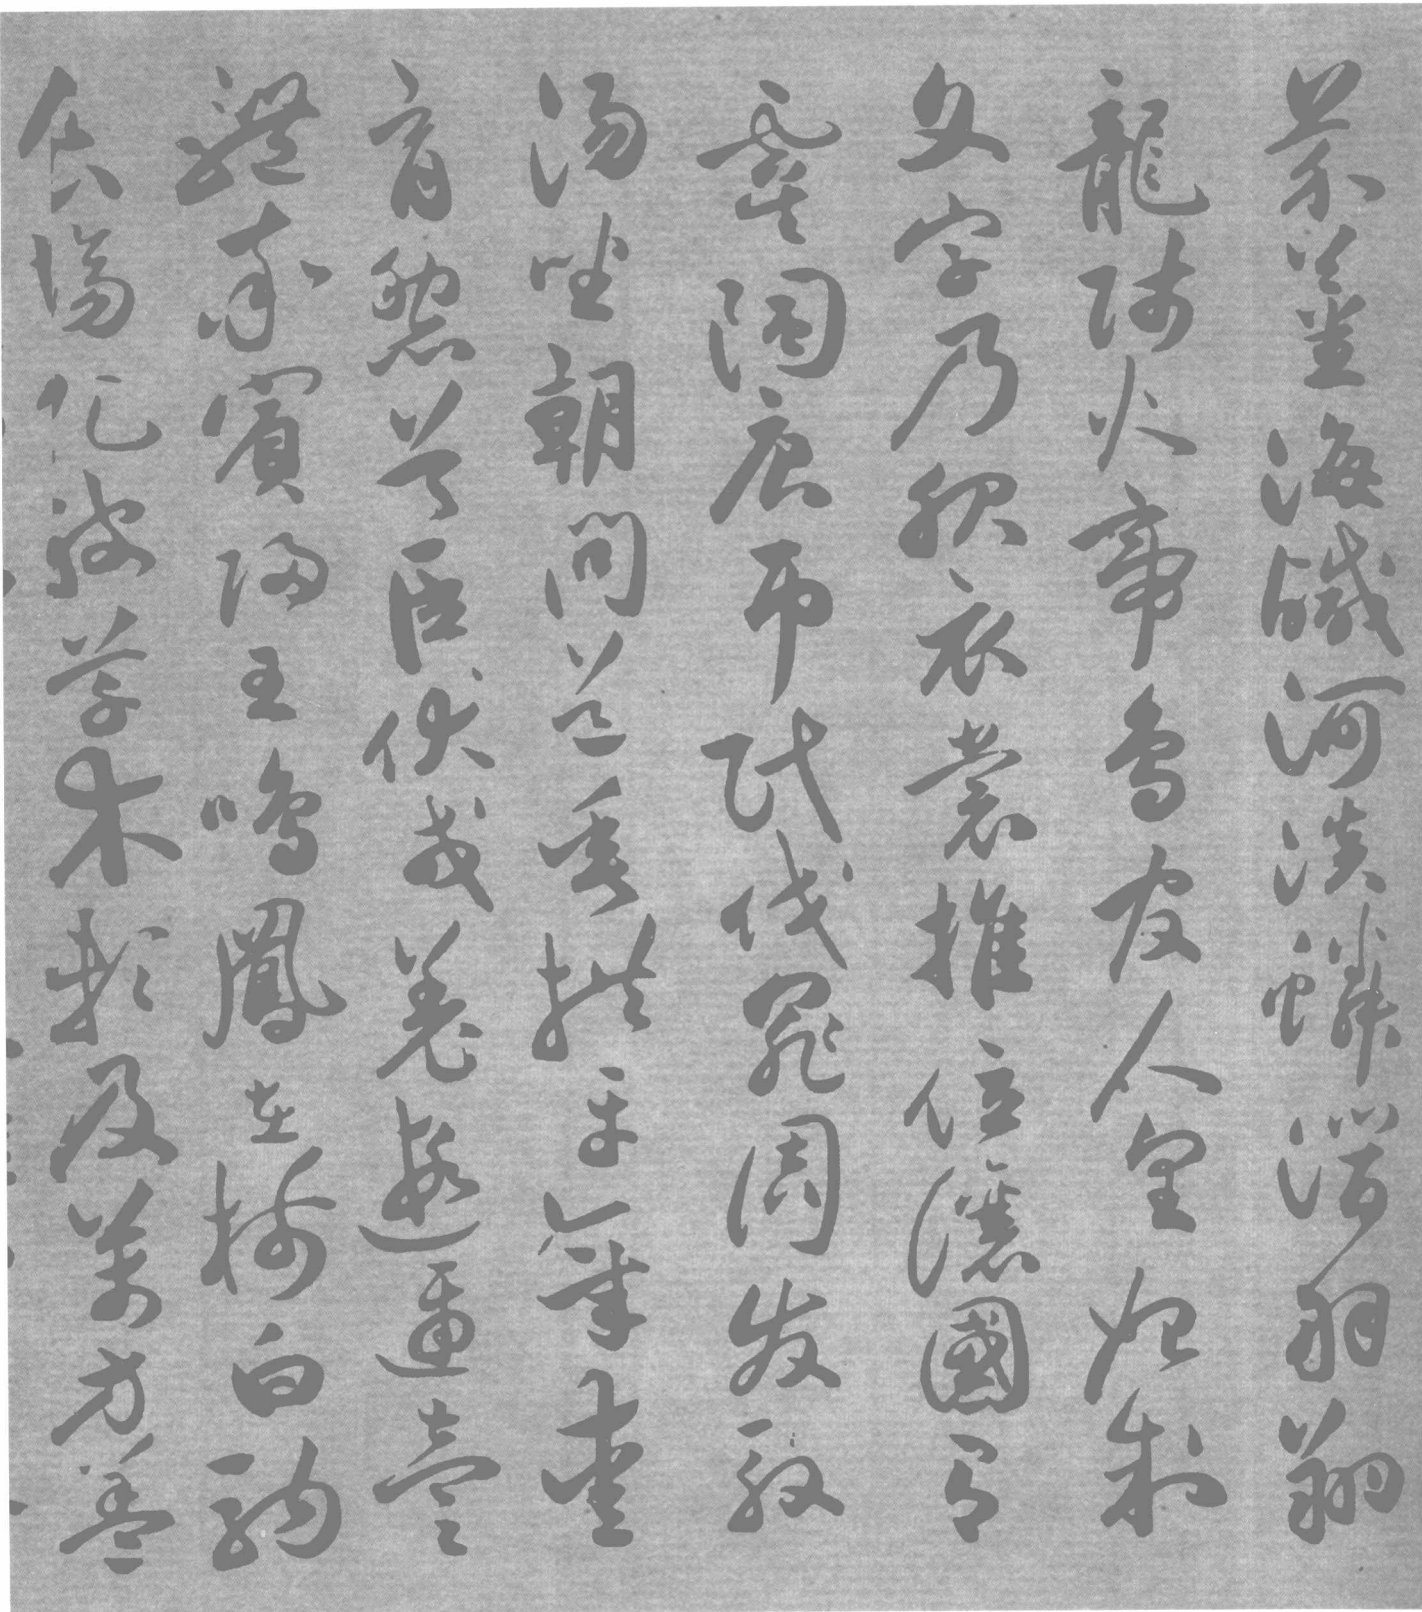 芥薑海鹹河淡鱗潛羽翔
龍師火帝鳥官人皇始制
文字乃服衣裳推位讓國有
虞陶唐弔民伐罪周發殷
湯坐朝問道垂拱平章愛
育黎首臣伏戎羌遐邇壹
體率賓歸王鳴鳳在樹白駒
食場化被草木賴及萬方蓋